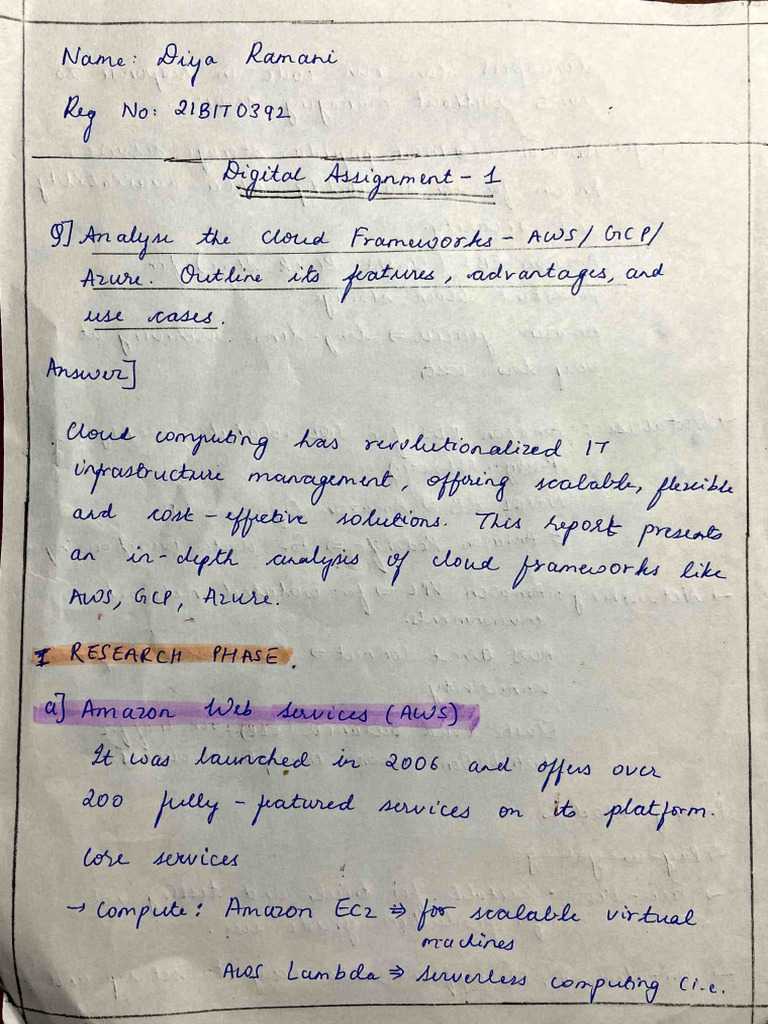 Name: Diya Ramani
Reg No: 21BIT0392
Digital Assignment - 1
Q] Analyse the Cloud Frameworks - AWS/GCP/
Azure. Outline its features, advantages, and
use cases.
Answer]
Cloud computing has revolutionalized IT
infrastructure management, offering scalable, flexible
and cost-effective solutions. This report presents
an in-depth analysis of cloud frameworks like
AWS, GCP, Azure.
I RESEARCH PHASE.
a] Amazon Web Services (AWS)
It was launched in 2006 and offers over
200 fully-featured services on its platform.
Core services
→ Compute: Amazon EC2 ⇒ for scalable virtual
machines
AWS Lambda ⇒ serverless computing (i.e.